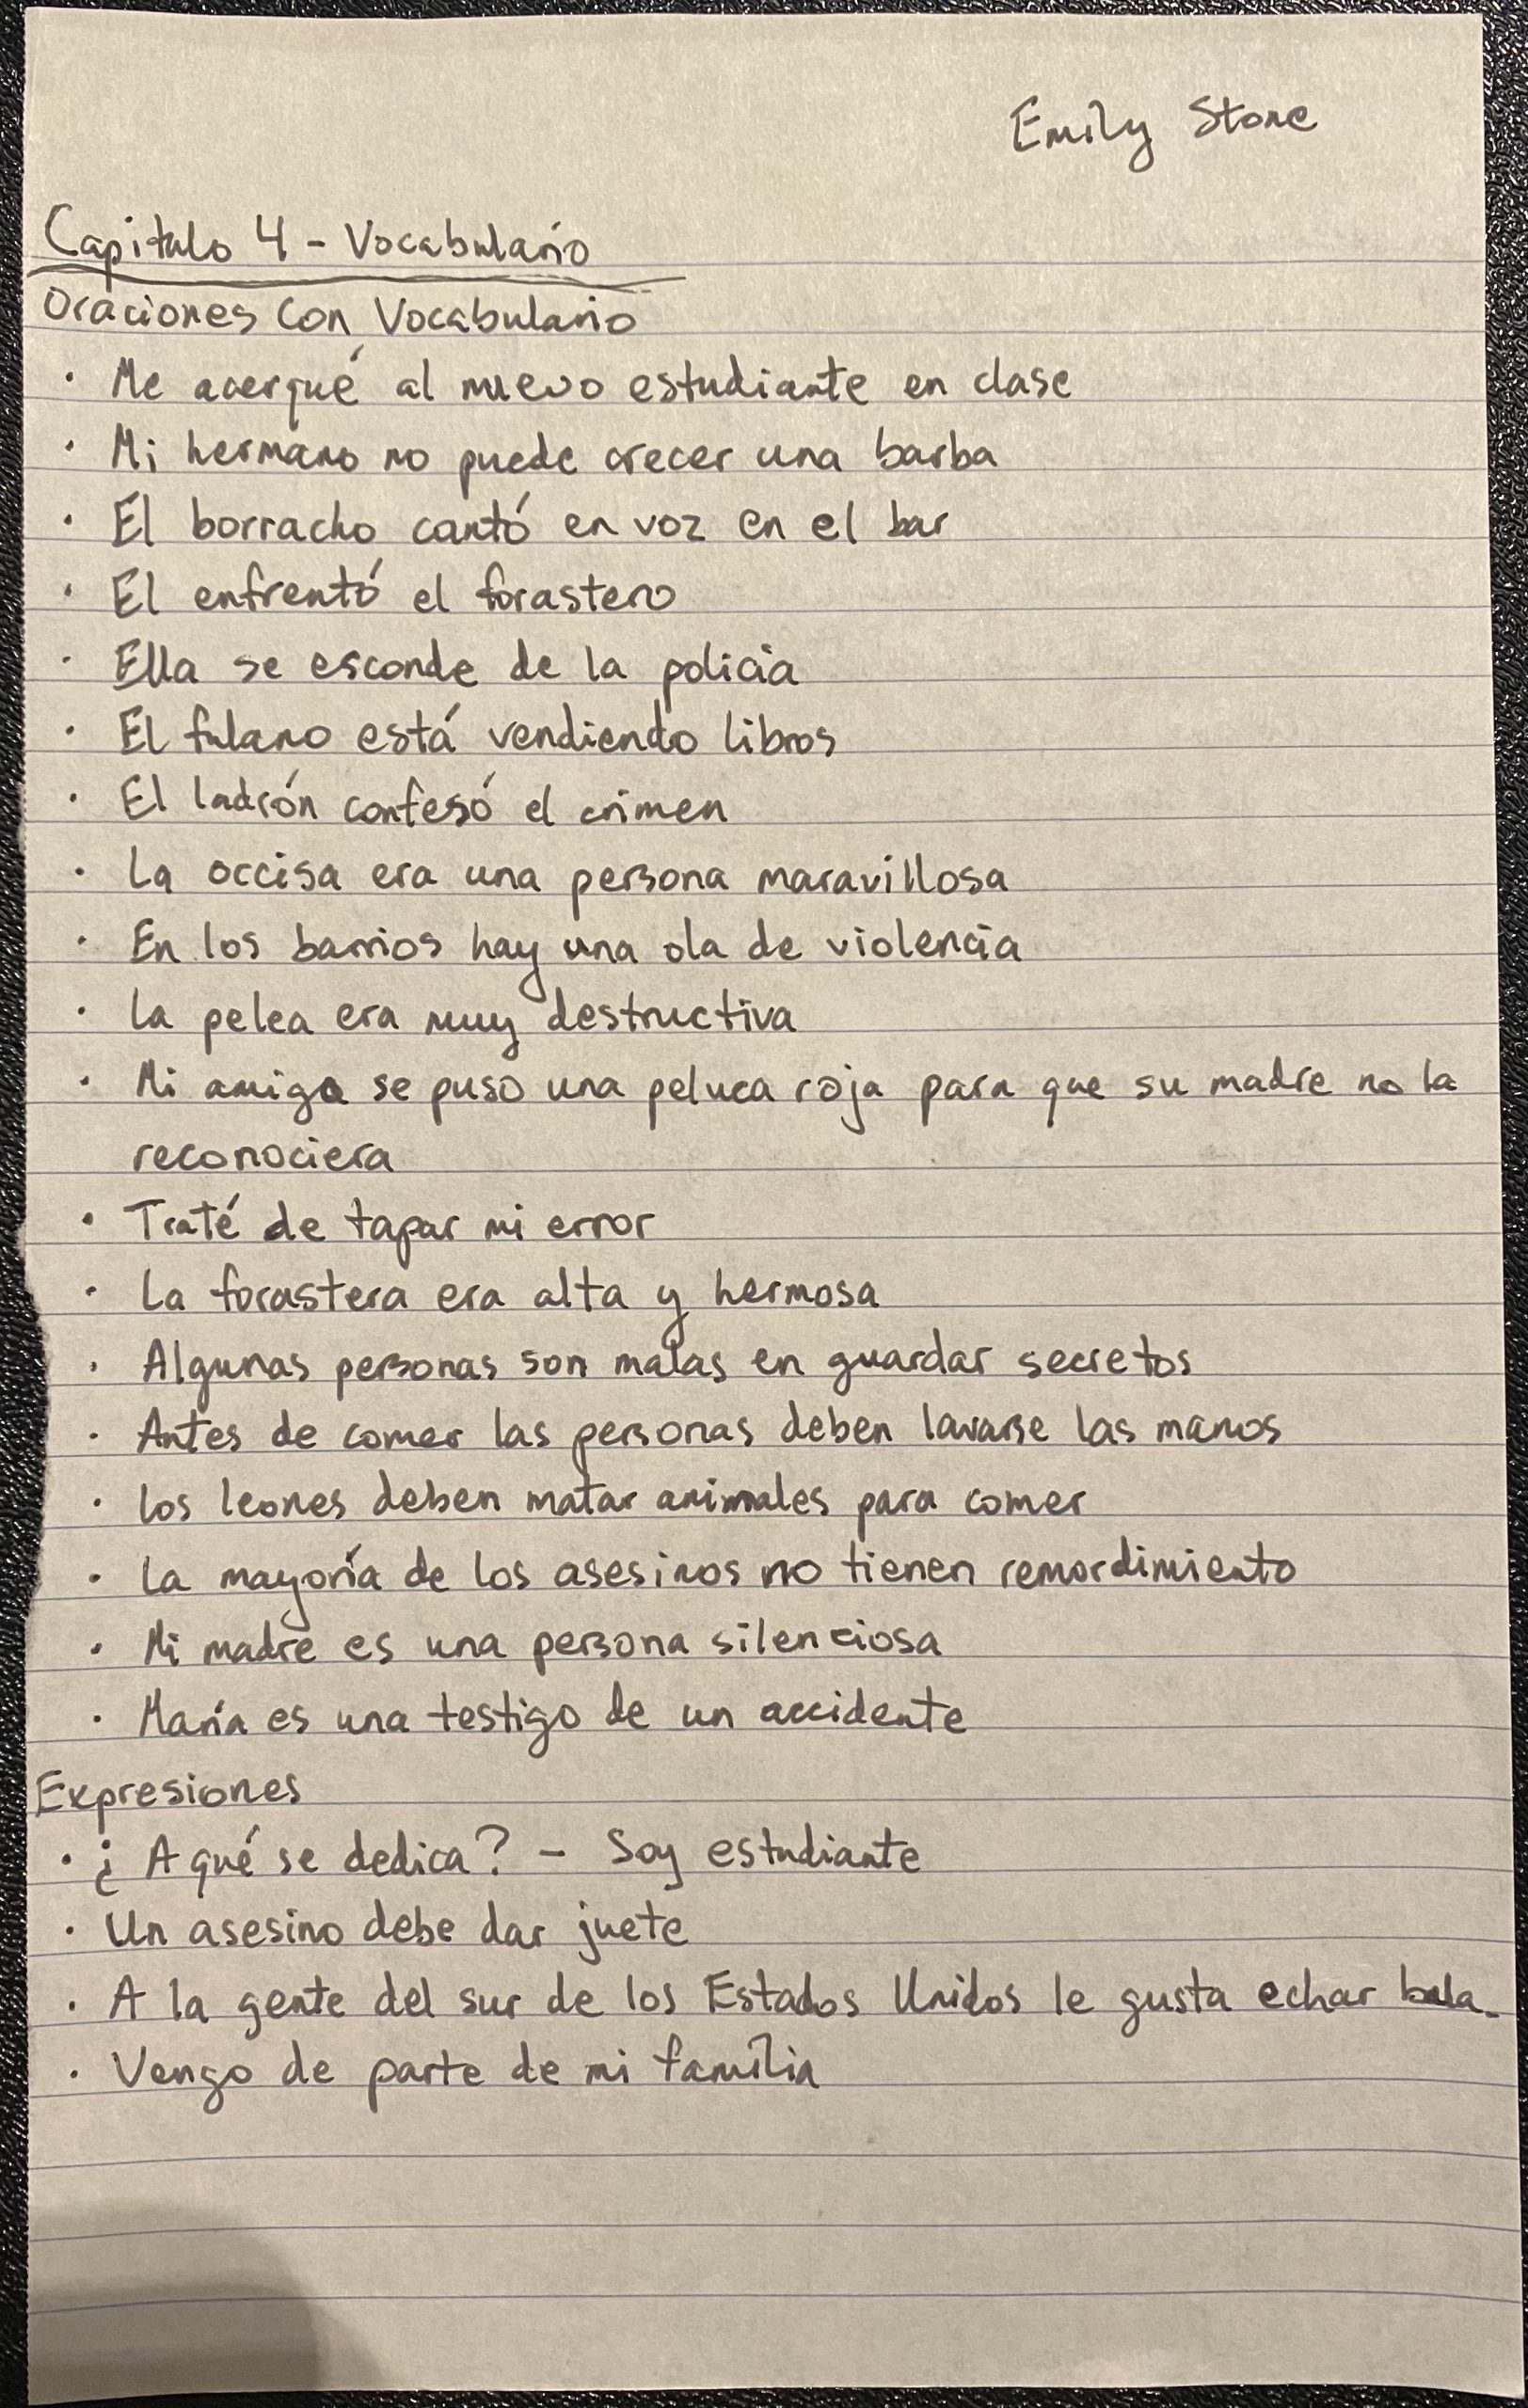 Emily Stone
Capitulo 4 - Vocabulario
Oraciones con Vocabulario
· Me acerqué al nuevo estudiante en clase
· Mi hermano no puede crecer una barba
· El borracho cantó en voz en el bar
· El enfrentó el forastero
· Ella se esconde de la policía
· El fulano está vendiendo libros
· El ladrón confesó el crimen
· La occisa era una persona maravillosa
· En los barrios hay una ola de violencia
· La pelea era muy destructiva
· Mi amiga se puso una peluca roja para que su madre no la
reconociera
· Traté de tapar mi error
· La forastera era alta y hermosa
· Algunas personas son malas en guardar secretos
· Antes de comer las personas deben lavarse las manos
· Los leones deben matar animales para comer
· La mayoría de los asesinos no tienen remordimiento
· Mi madre es una persona silenciosa
· María es una testigo de un accidente
Expresiones
· ¿A qué se dedica? - Soy estudiante
· Un asesino debe dar juete
· A la gente del sur de los Estados Unidos le gusta echar bala.
· Vengo de parte de mi família